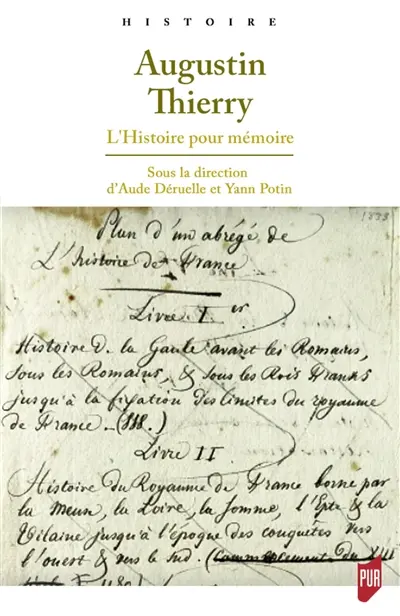 HISTOIRE
Augustin
Thierry
L'Histoire pour mémoire
Sous la direction
d'Aude Déruelle et Yann Potin
1833
Plan d'un abrégé de
L'histoire de France
Livre I.er
Histoire D. la Gaule avant les Romains,
sous les Romains, & sous les Rois Franks
jusqu'à la fixation des limites du royaume
de France._(888.)
Livre II
Histoire du Royaume de France borné par
la Meuse, la Loire, la Somme, l'Epte & la
Vilaine jusqu'à l'époque des conquêtes vers
l'ouest & vers le sud. (Commencement du XIII
PUR